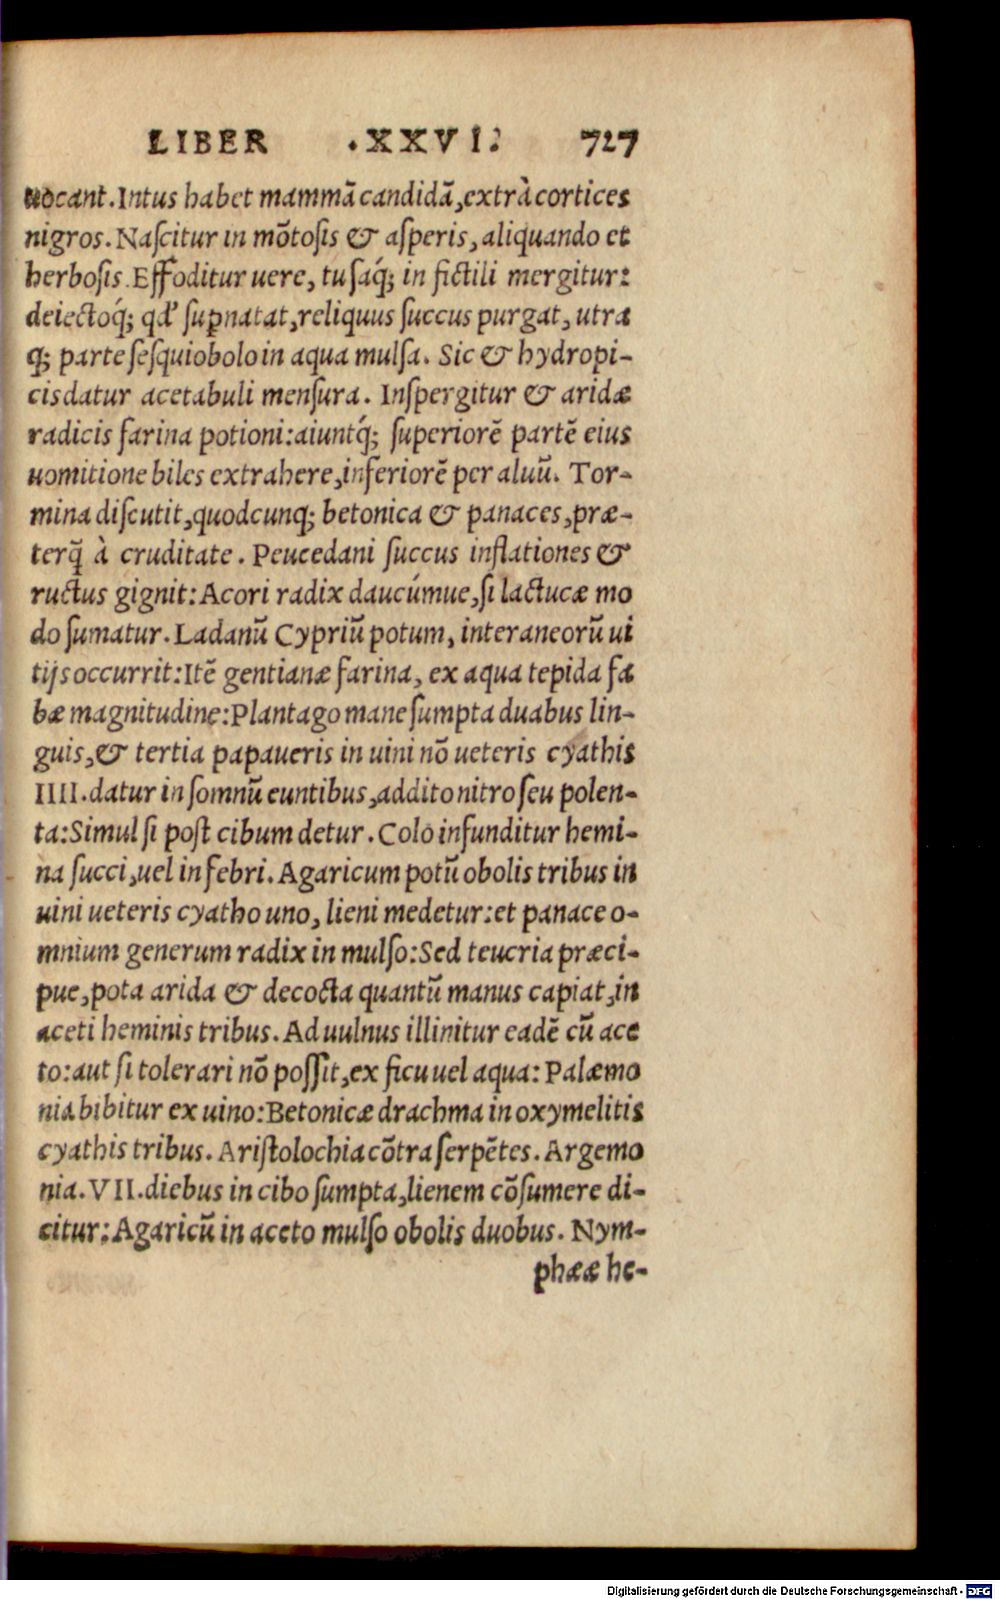 LIBER .XXVI. 727
uocant. Intus habet mammā candidā, extrà cortices
nigros. Naſcitur in mōtoſis & aſperis, aliquando et
herboſis. Effoditur uere, tuſaq́; in fictili mergitur:
deiectoq́; qd' supnatat, reliquus ſuccus purgat, utra
q; parte ſeſquiobolo in aqua mulſa. Sic & hydropi-
cis datur acetabuli menſura. Inſpergitur & aridæ
radicis farina potioni: aiuntq́; ſuperiorē partē eius
uomitione biles extrahere, inferiorē per aluū. Tor-
mina diſcutit, quodcunq; betonica & panaces, præ-
terq̄ à cruditate. Peucedani ſuccus inflationes &
ructus gignit: Acori radix daucúmue, ſi lactucæ mo
do ſumatur. Ladanū Cypriū potum, interaneorū ui
tijs occurrit: Itē gentianæ farina, ex aqua tepida fa
bæ magnitudine: Plantago mane ſumpta duabus lin-
guis, & tertia papaueris in uini nō ueteris cyathis
IIII. datur in ſomnū euntibus, addito nitro ſeu polen-
ta: Simul ſi poſt cibum detur. Colo infunditur hemi-
na ſucci, uel in febri. Agaricum potū obolis tribus in
uini ueteris cyatho uno, lieni medetur: et panace o-
mnium generum radix in mulſo: Sed teucria præci-
pue, pota arida & decocta quantū manus capiat, in
aceti heminis tribus. Ad uulnus illinitur eadē cū ace
to: aut ſi tolerari nō poſſit, ex ficu uel aqua: Palæmo
nia bibitur ex uino: Betonicæ drachma in oxymelitis
cyathis tribus. Ariſtolochia cōtra ſerpētes. Argemo
nia. VII. diebus in cibo ſumpta, lienem cōſumere di-
citur: Agaricū in aceto mulſo obolis duobus. Nym-
phææ he-
Digitalisierung gefördert durch die Deutsche Forschungsgemeinschaft - DFG